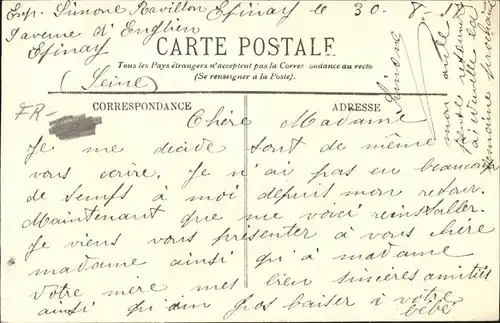 Exp. Simone Ravillon Epinay le 30-8-
avenue d'Enghien
Epinay
(Seine)
CARTE POSTALE
Tous les Pays étrangers n'acceptent pas la Correspondance au recto
(Se renseigner à la Poste)
CORRESPONDANCE
ADRESSE
FR-
Chère Madame
Je me décide tout de même
vous écrire. Je n'ai pas eu beaucoup
de temps à moi depuis mon retour.
Maintenant que me voici reinstaller.
Je viens vous présenter à vous chère
madame ainsi qu'à madame
votre mère mes bien sincères amitiés
ainsi qu'un gros baiser à votre
bébé
Simone
mon
semaine prochaine